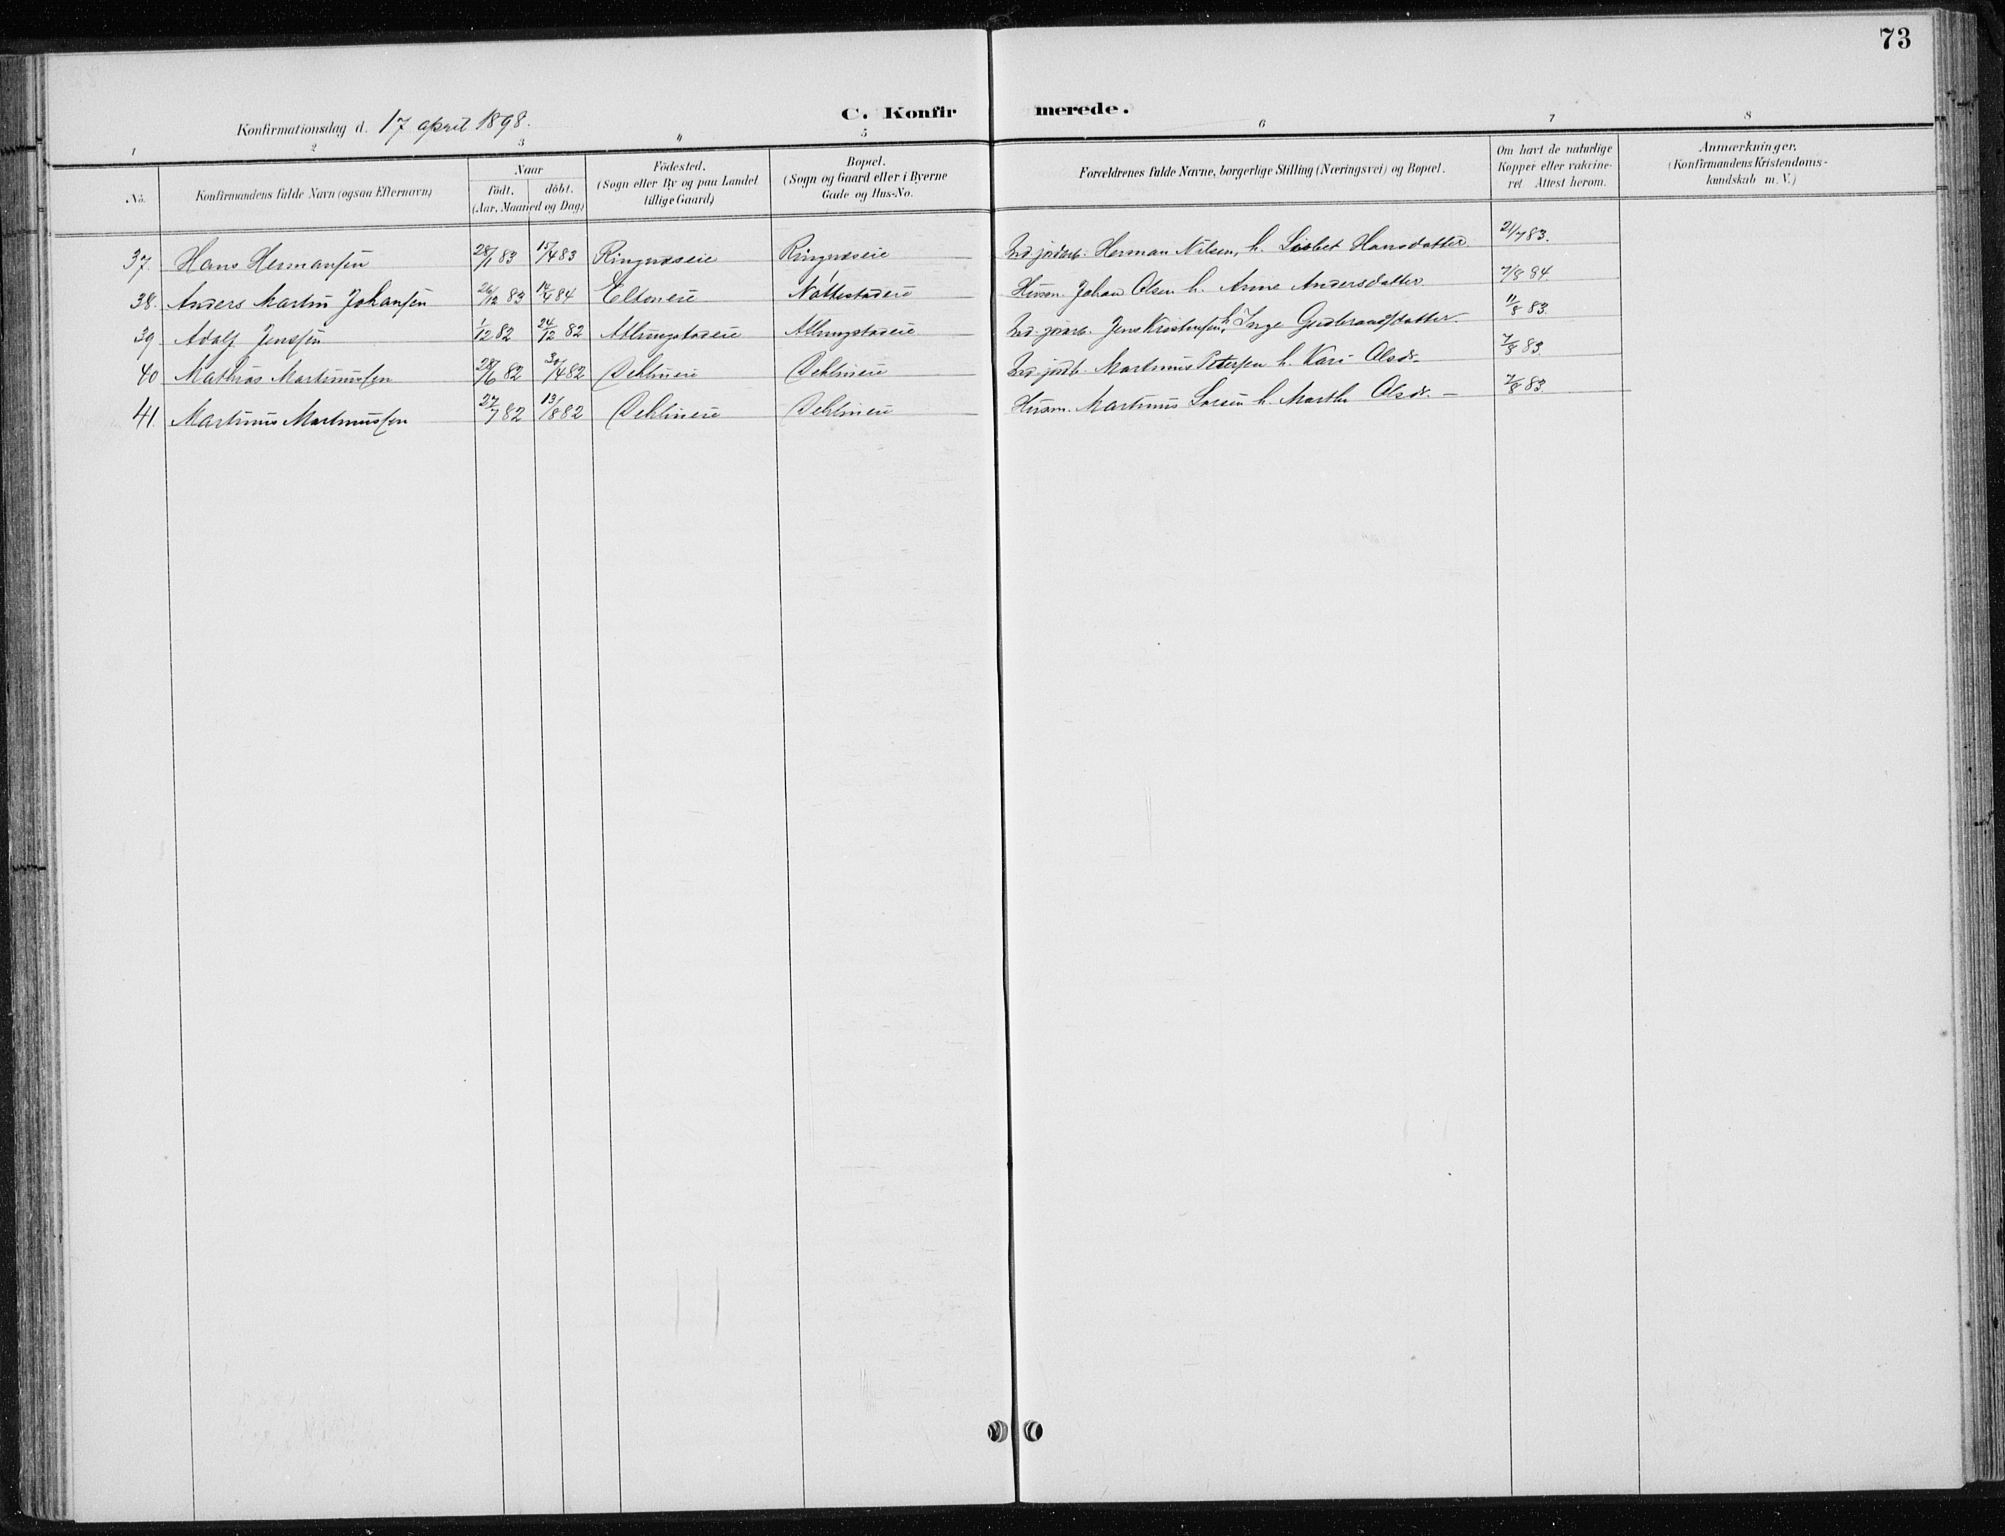 73
Konfirmationsdag d. 17 april 1898.
C. Konfirmerede.
1 2 3 4 5 6 7 8
No. Konfirmandens fulde Navn (ogsaa Efternavn) Naar födt. döbt. (Aar, Maaned og Dag) Födested. (Sogn eller By og paa Landet tillige Gaard) Bopæl. (Sogn og Gaard eller i Byerne Gade og Hus-No. Forældrenes fulde Navne, borgerlige Stilling (Næringsvei) og Bopæl. Om havt de naturlige Kopper eller vakcineret. Attest herom. Anmærkninger. (Konfirmandens Kristendomskundskab m. V.)
37. Hans Hermansen 28/1 83 15/4 83 Ringnæseie Ringnæseie Ind. jordarb. Herman Nilsen, h. Lisbet Hansdatter 21/7 83.
38. Anders Martin Johansen 26/12 83 14/4 84 Eltoneie Nøttestadeie Husm. Johan Olsen h. Anne Andersdatter 7/8 84
39 Adolf Jenssen 1/12 82 24/12 82 Alhungstadeie Alhungstadeie Ind. jordarb. Jens Kristensen, h. Inge Gudbrandsdatter. 11/8 83.
40 Mathias Martinussen 28/6 82 30/4 82 Dehlineie Dehlineie Ind. jordb. Martinus Petersen h. Kari Olsdr. 7/8 83.
41. Martinus Martinussen 27/7 82 13/8 82 Dehlineie Dehlineie Husm. Martinus Larsen h. Marthe Olsdr. - 7/8 83.